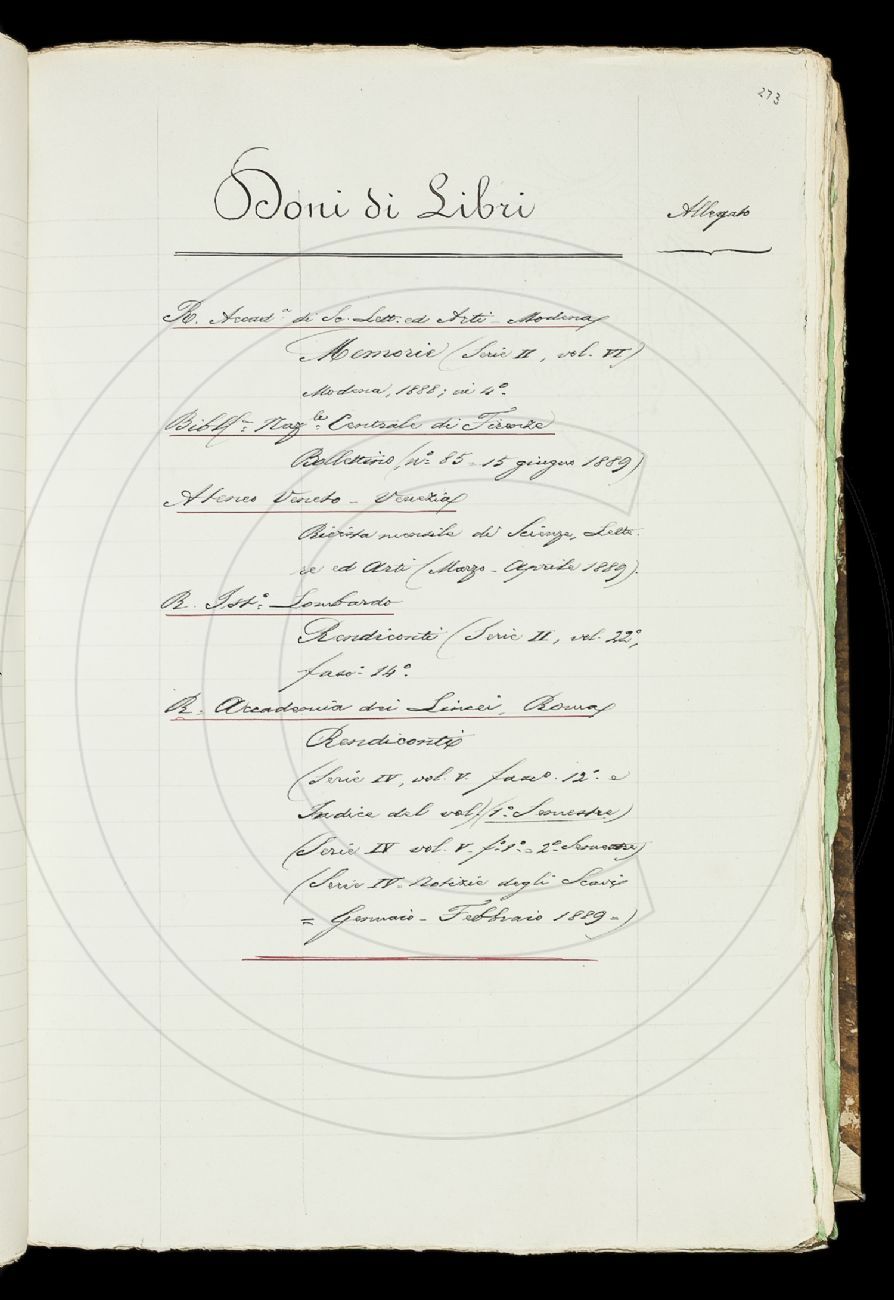 273
Doni di Libri
Allegato
R. Accad.ª di Sc. Lett. ed Arti - Modena
Memorie (Serie II, vol. VI)
Modena, 1888; in 4º.
Naz.le Centrale di Firenze
Bollettino (nº 85 - 15 giugno 1889)
Ateneo Veneto - Venezia
Rivista mensile di Scienze, Lette-
re ed Arti (Marzo - Aprile 1889).
R. Ist.º Lombardo
Rendiconti (Serie II, vol. 22º,
fasc. 14º.
R. Accademia dei Lincei, Roma
Rendiconti
(Serie IV, vol. V. fasc. 12º. e
Indice del vol) (1º Semestre)
(Serie IV vol. V. fº. 1º. - 2º Semestre)
(Serie IV = Notizie degli Scavi
= Gennaio - Febbraio 1889 =)